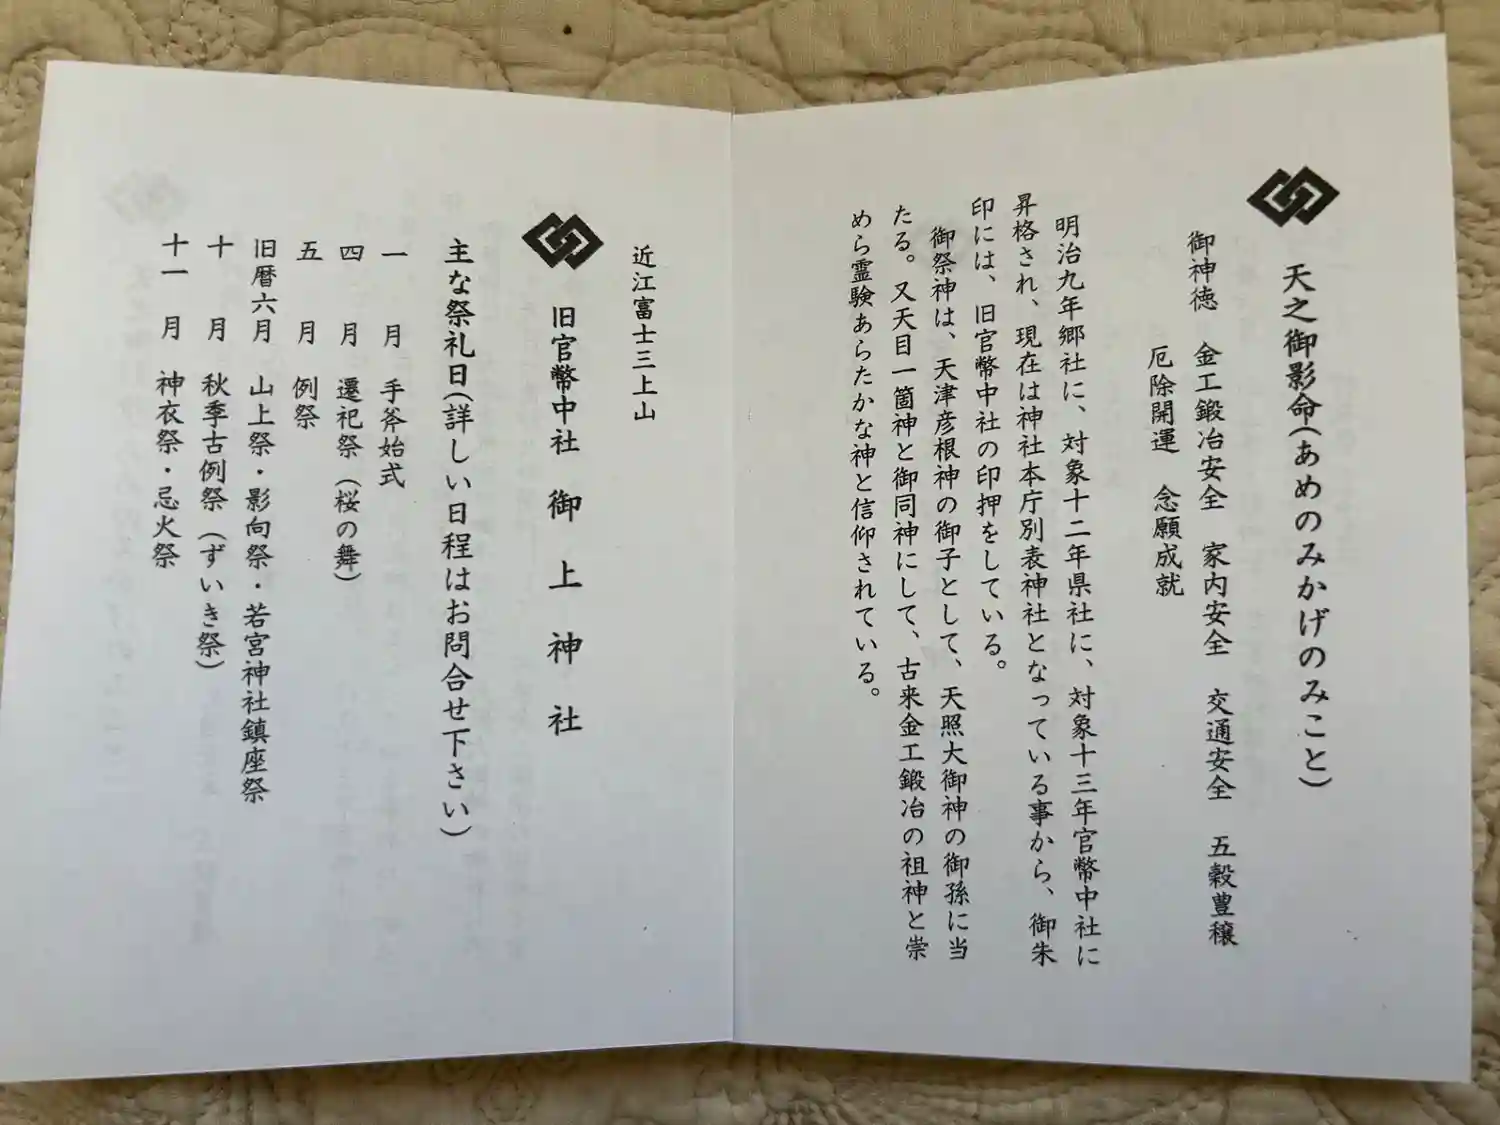 天之御影命(あめのみかげのみこと)
御神徳 金工鍛冶安全 家内安全 交通安全 五穀豊穣
厄除開運 念願成就
明治九年郷社に、対象十二年県社に、対象十三年官幣中社に
昇格され、現在は神社本庁別表神社となっている事から、御朱
印には、旧官幣中社の印押をしている。
御祭神は、天津彦根神の御子として、天照大御神の御孫に当
たる。又天目一箇神と御同神にして、古来金工鍛冶の祖神と崇
めら霊験あらたかな神と信仰されている。
近江富士三上山
旧官幣中社 御上神社
主な祭礼日(詳しい日程はお問合せ下さい)
一月 手斧始式
四月 遷祀祭(桜の舞)
五月 例祭
旧暦六月 山上祭・影向祭・若宮神社鎮座祭
十月 秋季古例祭(ずいき祭)
十一月 神衣祭・忌火祭